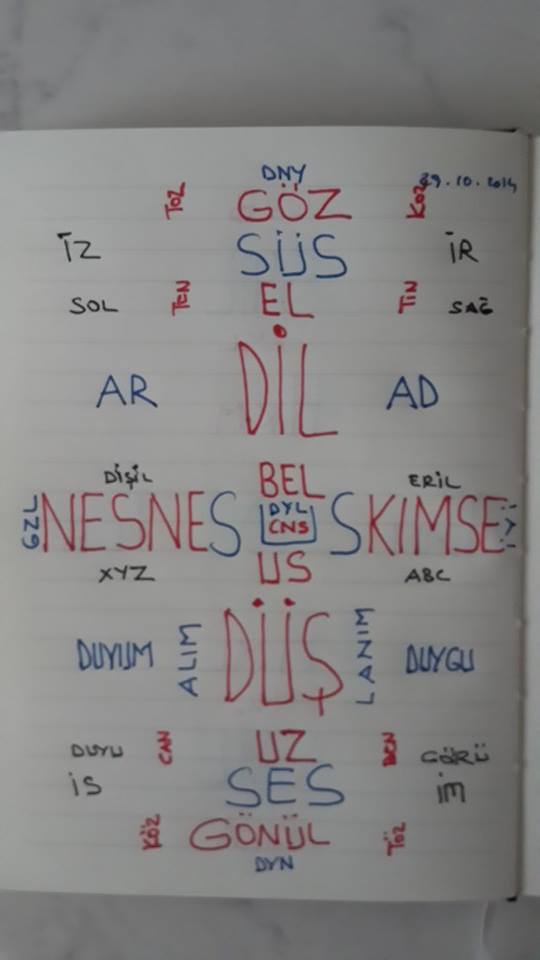 DNY
29.10.2014
TOZ GÖZ KOZ
İZ SÜS İR
SOL TEN EL TİN SAĞ
AR DİL AD
DİŞİL BEL ERİL
GZL NESNES DYL CNS SKIMSE
XYZ US ABC
DUYUM ALIM DÜŞ LANIM DUYGU
DUYU CAN UZ BEN GÖRÜ
İS SES İM
KÖZ GÖNÜL TÖZ
DYN